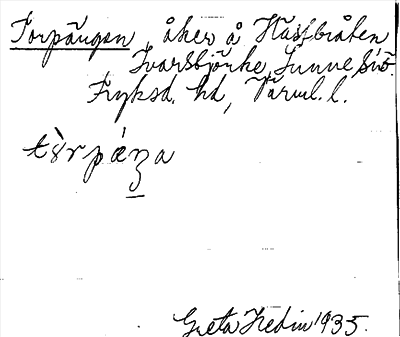 Torpängen, åker å Hästbråten
Ivarsbjörke, Sunne sn.
Fryksd. hd, Värml. l.
Greta Hedin 1935.